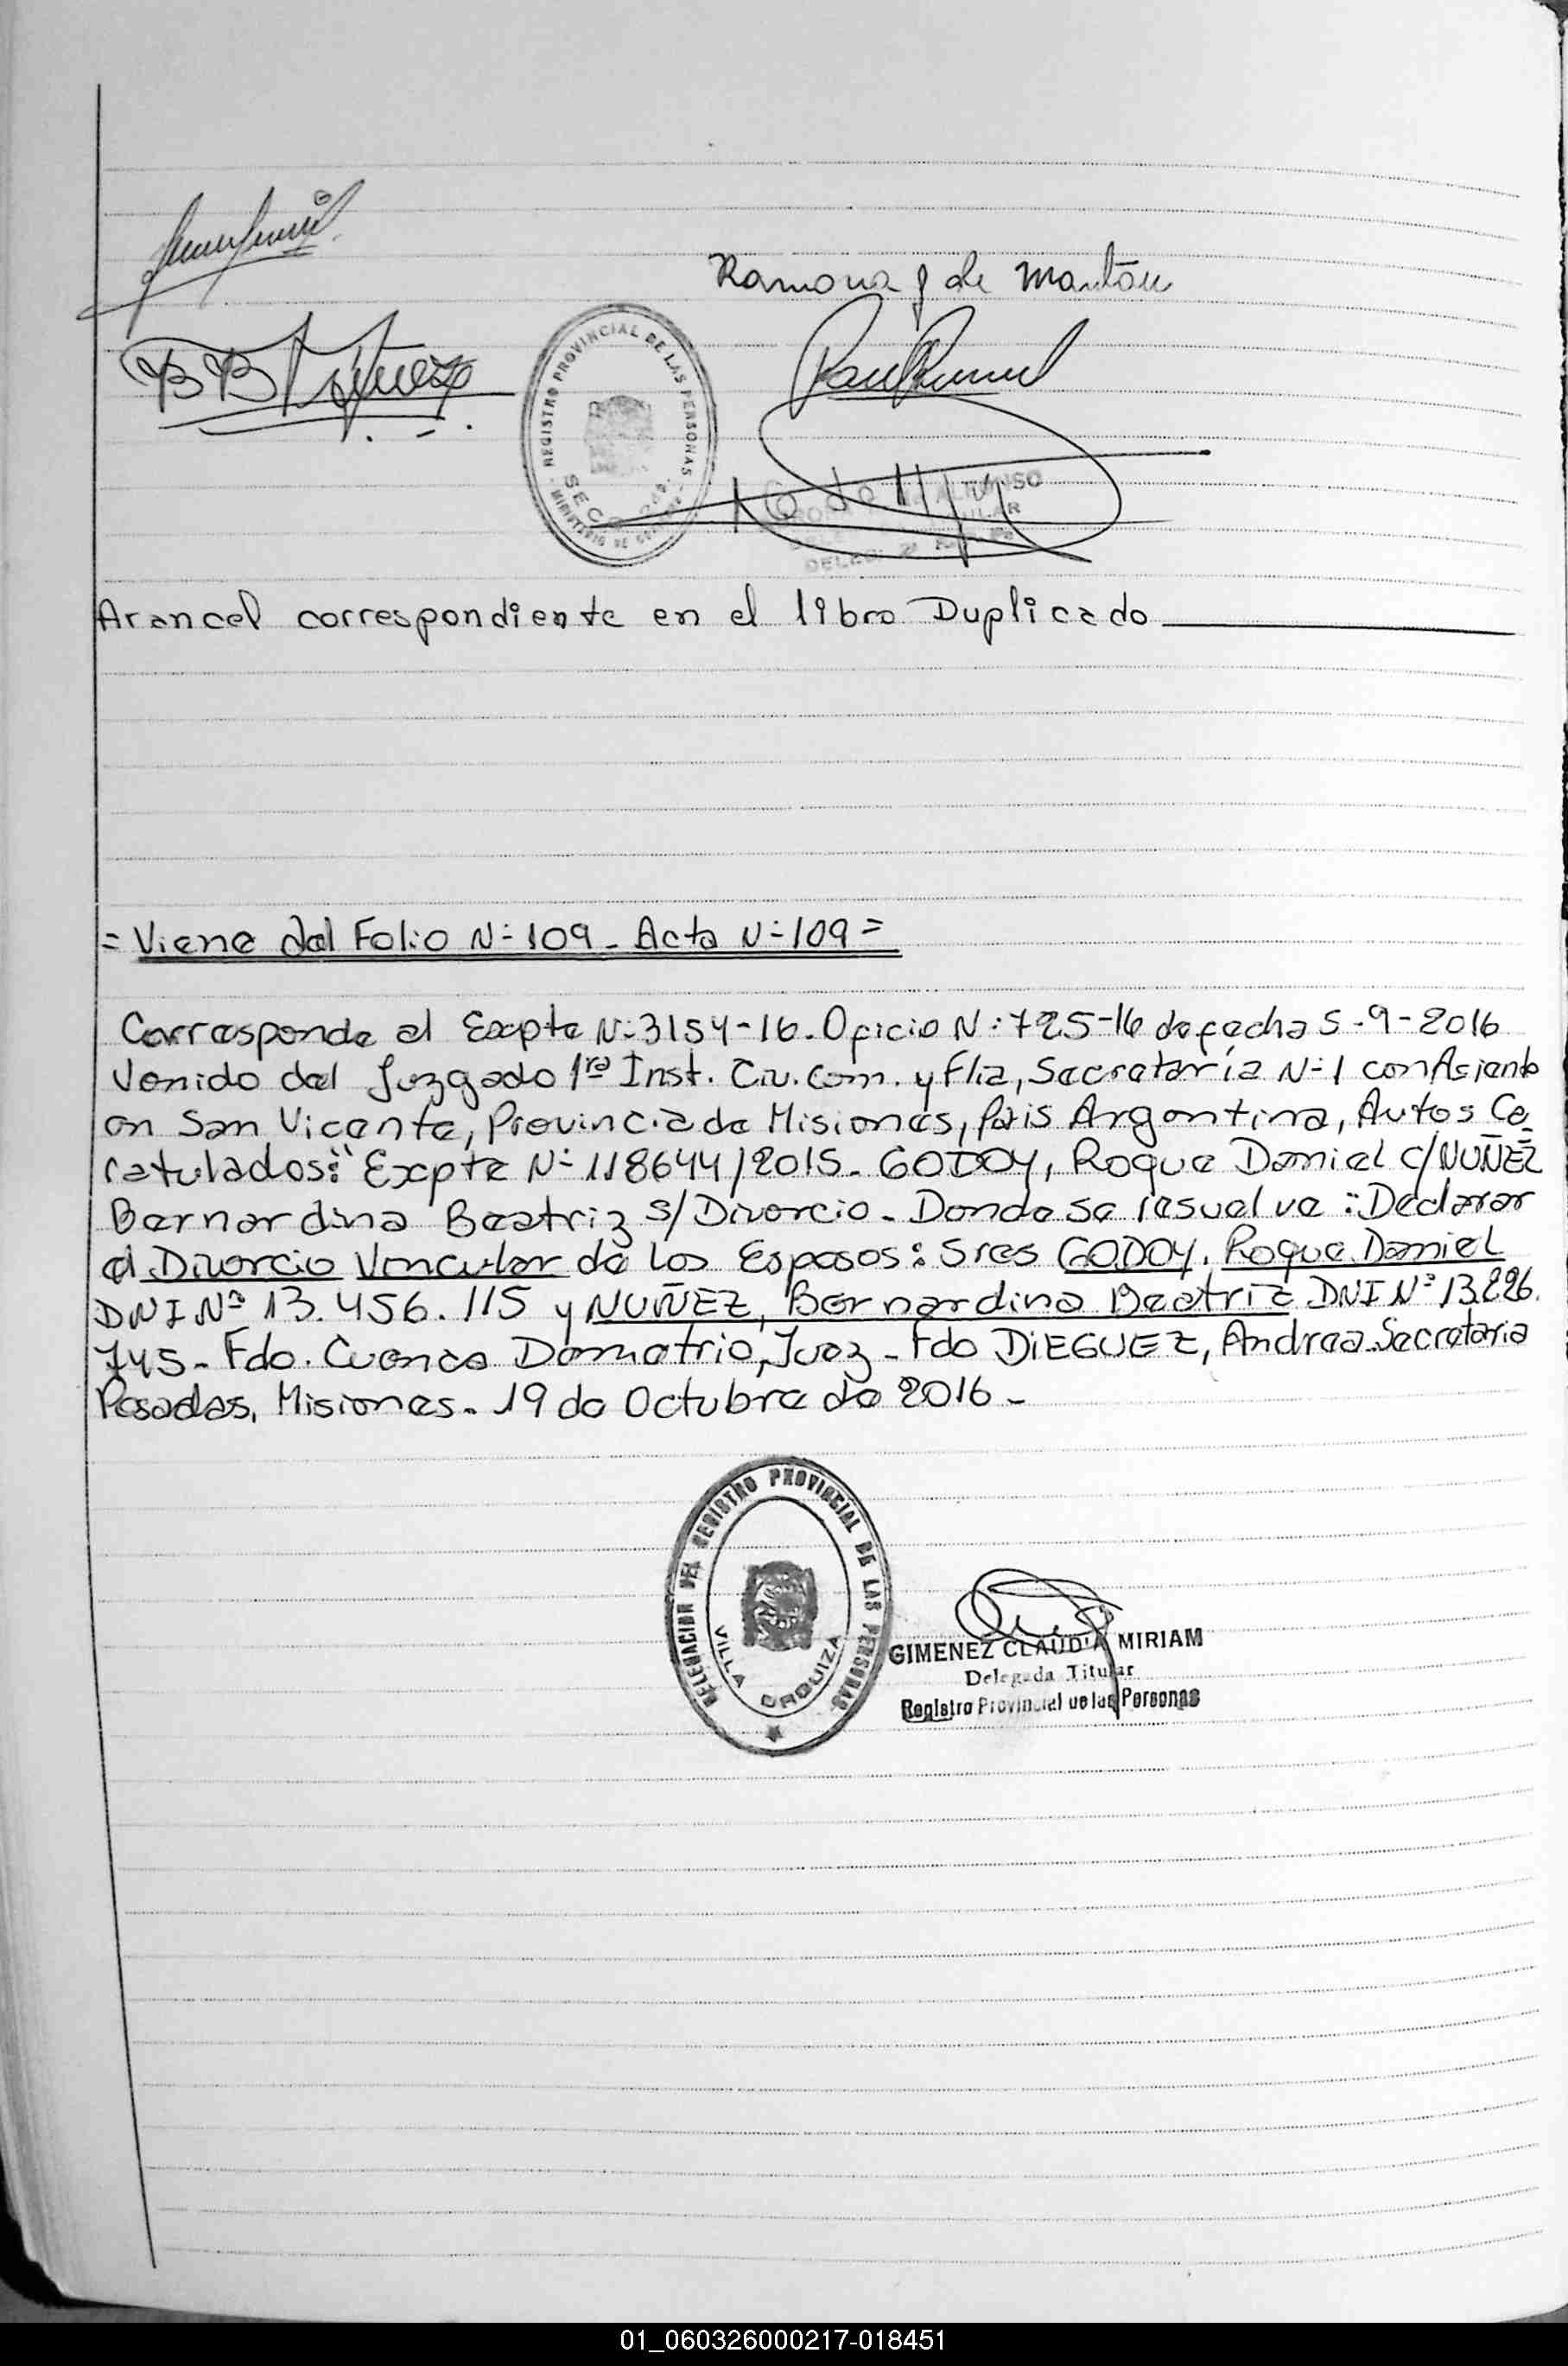 Ramona G de Mantau
REGISTRO PROVINCIAL DE LAS PERSONAS
MINISTERIO DE
Arancel correspondiente en el libro Duplicado
= Viene del Folio N-109 - Acta N-109 =
Corresponde al Expte N:3154-16. Oficio N:725-16 de fecha 5-9-2016
Venido del Juzgado 1ra Inst. Civ. Com. y Flia, Secretaría N-1 con Asiento
en San Vicente, Provincia de Misiones, País Argentina, Autos Ca_
ratulados: "Expte N- 118644/2015 - GODOY, Roque Daniel c/NUÑEZ
Bernardina Beatriz s/Divorcio - Donde se resuelve: Declarar
el Divorcio Vincular de los Esposos: Sres GODOY, Roque Daniel
DNI Nº 13.456.115 y NUÑEZ, Bernardina Beatriz DNI Nº 13.226.
745 - Fdo. Cuenca Demetrio, Juez - Fdo DIEGUEZ, Andrea Secretaria
Posadas, Misiones - 19 de Octubre de 2016 -
DELEGACION DEL REGISTRO PROVINCIAL DE LAS PERSONAS
VILLA URQUIZA
GIMENEZ CLAUDIA MIRIAM
Delegada Titular
Registro Provincial de las Personas
01_060326000217-018451